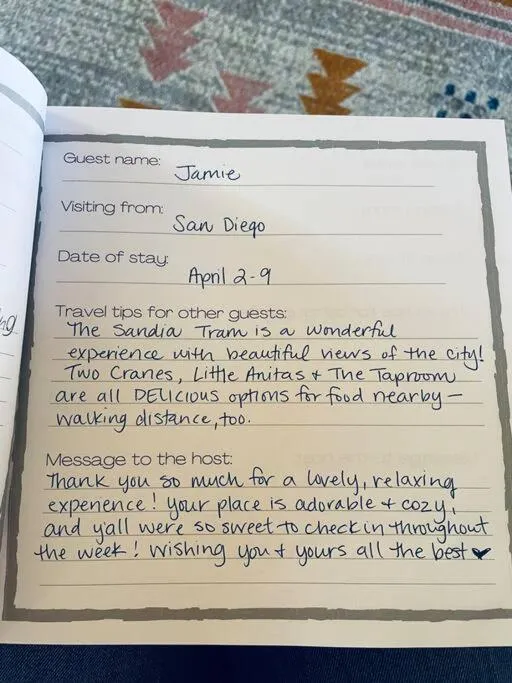 Guest name: Jamie
Visiting from: San Diego
Date of stay: April 2-9
Travel tips for other guests:
The Sandia Tram is a wonderful
experience with beautiful views of the city!
Two Cranes, Little Anitas + The Taproom
are all DELICIOUS options for food nearby —
walking distance, too.
Message to the host:
Thank you so much for a lovely, relaxing
experience! Your place is adorable + cozy,
and y'all were so sweet to check in throughout
the week! Wishing you + yours all the best ♥